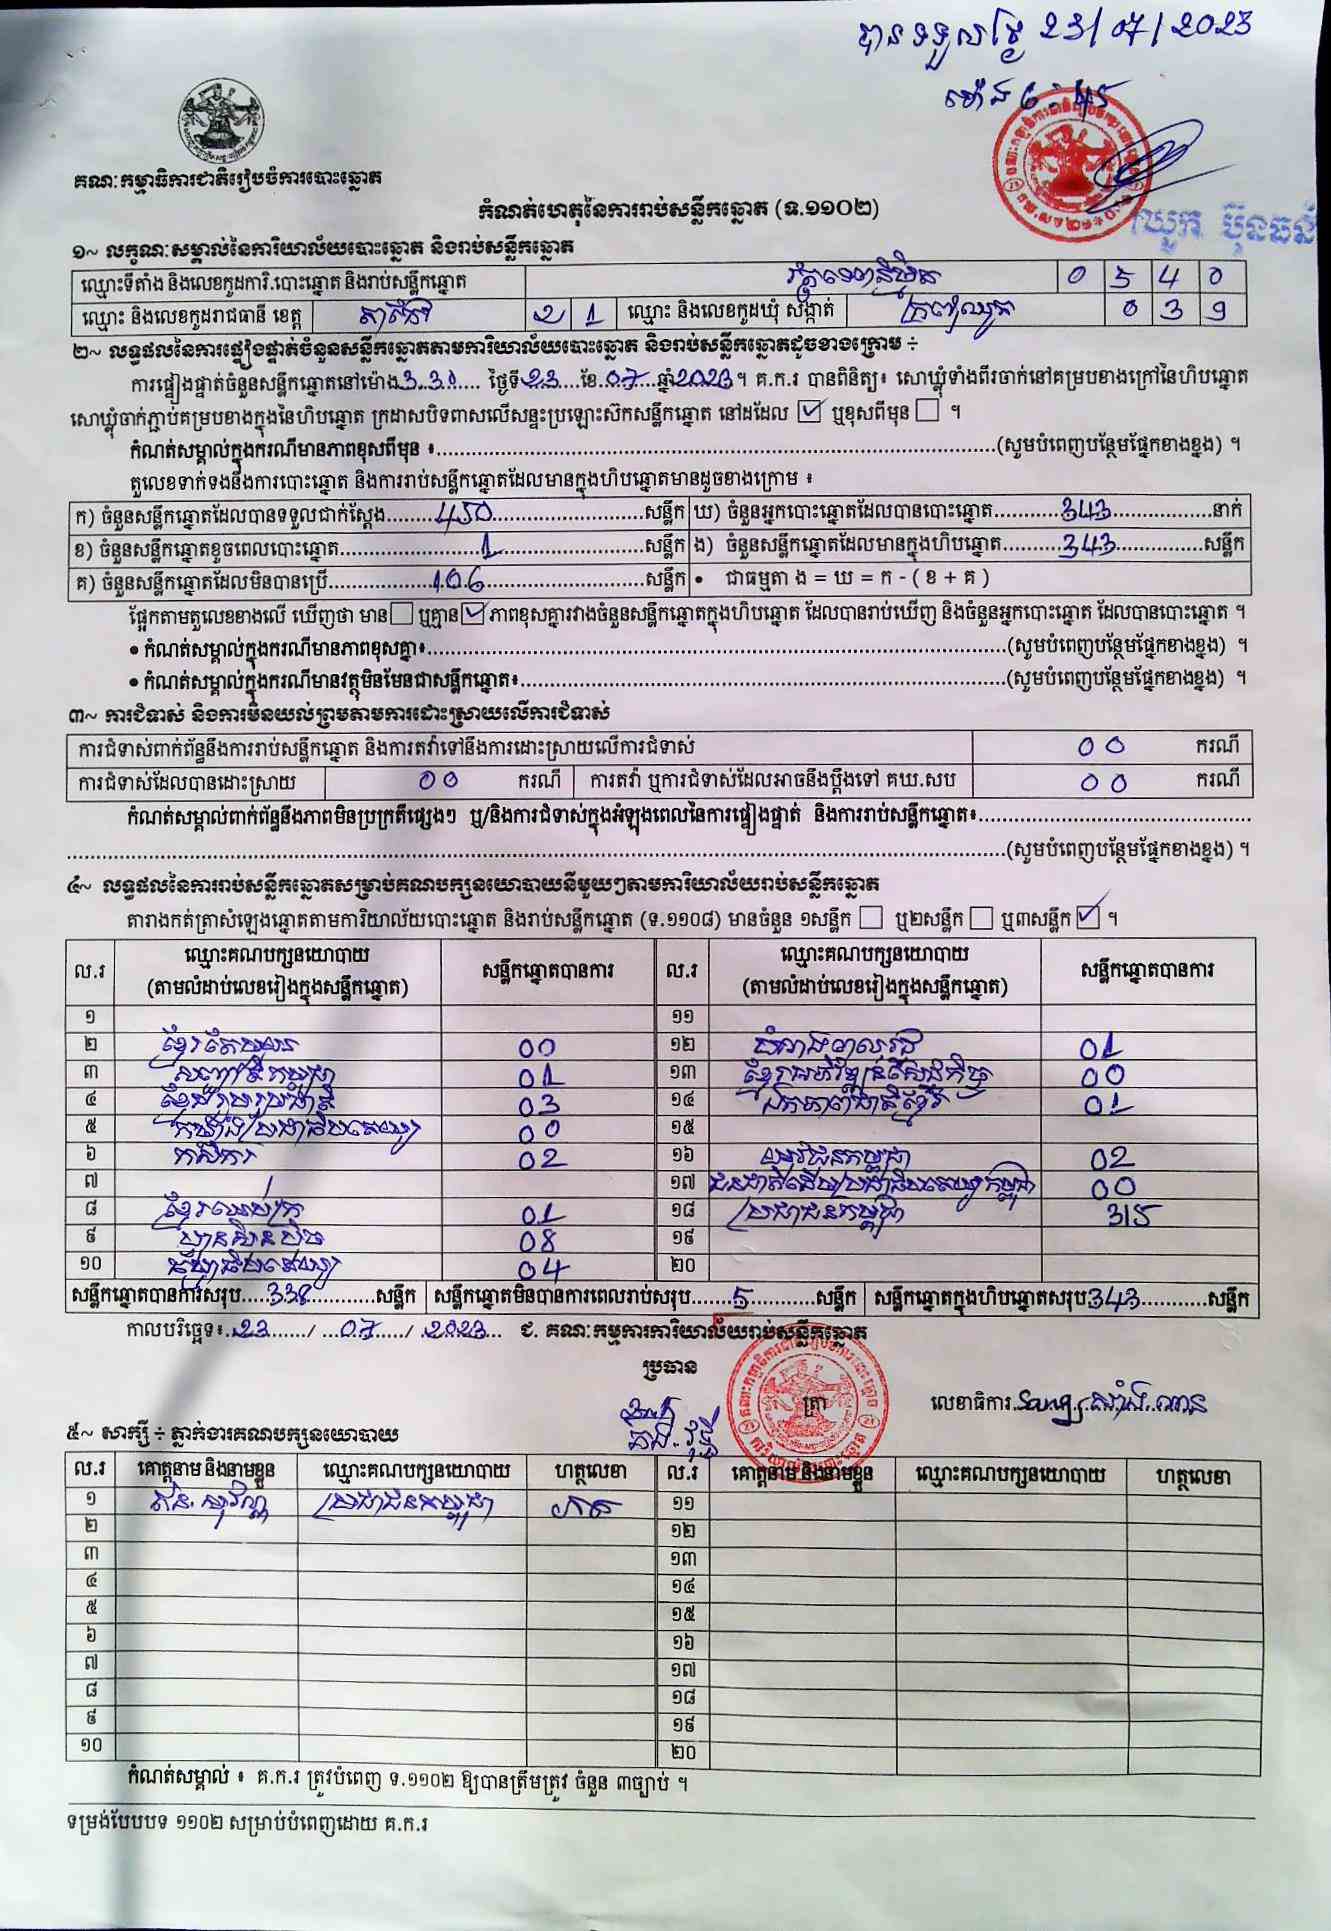 បានទទួលថ្ងៃ 23/07/2023
ម៉ោង 6:45
គណៈកម្មាធិការជាតិរៀបចំការបោះឆ្នោត
កំណត់ហេតុនៃការរាប់សន្លឹកឆ្នោត (ទ.១១០២)
១~ លក្ខណៈសម្គាល់នៃការិយាល័យបោះឆ្នោត និងរាប់សន្លឹកឆ្នោត
ឈ្មោះទីតាំង និងលេខកូដការិ.បោះឆ្នោត និងរាប់សន្លឹកឆ្នោត 0 5 4 0
ឈ្មោះ និងលេខកូដរាជធានី ខេត្ត តាកែវ 2 1 ឈ្មោះ និងលេខកូដឃុំ សង្កាត់ 0 3 9
២~ លទ្ធផលនៃការផ្ទៀងផ្ទាត់ចំនួនសន្លឹកឆ្នោតតាមការិយាល័យបោះឆ្នោត និងរាប់សន្លឹកឆ្នោតដូចខាងក្រោម ÷
ការផ្ទៀងផ្ទាត់ចំនួនសន្លឹកឆ្នោតនៅម៉ោង 3.30 ថ្ងៃទី 23 ខែ 07 ឆ្នាំ 2023 ។ គ.ក.រ បានពិនិត្យ៖ សោឃ្លុំទាំងពីរចាក់នៅគម្របខាងក្រៅនៃហិបឆ្នោត
សោឃ្លុំចាក់ភ្ជាប់គម្របខាងក្នុងនៃហិបឆ្នោត ក្រដាសបិទពាសលើសន្ទះប្រឡោះស៊កសន្លឹកឆ្នោត នៅដដែល ☑ ឬខុសពីមុន ☐ ។
កំណត់សម្គាល់ក្នុងករណីមានភាពខុសពីមុន ៖ (សូមបំពេញបន្ថែមផ្នែកខាងខ្នង) ។
តួលេខទាក់ទងនឹងការបោះឆ្នោត និងការរាប់សន្លឹកឆ្នោតដែលមានក្នុងហិបឆ្នោតមានដូចខាងក្រោម ៖
ក) ចំនួនសន្លឹកឆ្នោតដែលបានទទួលជាក់ស្តែង 450 សន្លឹក ឃ) ចំនួនអ្នកបោះឆ្នោតដែលបានបោះឆ្នោត 343 នាក់
ខ) ចំនួនសន្លឹកឆ្នោតខូចពេលបោះឆ្នោត 1 សន្លឹក ង) ចំនួនសន្លឹកឆ្នោតដែលមានក្នុងហិបឆ្នោត 343 សន្លឹក
គ) ចំនួនសន្លឹកឆ្នោតដែលមិនបានប្រើ 106 សន្លឹក • ជាធម្មតា ង = ឃ = ក - ( ខ + គ )
ផ្អែកតាមតួលេខខាងលើ ឃើញថា មាន ☐ ឬគ្មាន ☑ ភាពខុសគ្នារវាងចំនួនសន្លឹកឆ្នោតក្នុងហិបឆ្នោត ដែលបានរាប់ឃើញ និងចំនួនអ្នកបោះឆ្នោត ដែលបានបោះឆ្នោត ។
• កំណត់សម្គាល់ក្នុងករណីមានភាពខុសគ្នា៖ (សូមបំពេញបន្ថែមផ្នែកខាងខ្នង) ។
• កំណត់សម្គាល់ក្នុងករណីមានវត្ថុមិនមែនជាសន្លឹកឆ្នោត៖ (សូមបំពេញបន្ថែមផ្នែកខាងខ្នង) ។
៣~ ការជំទាស់ និងការមិនយល់ព្រមតាមការដោះស្រាយលើការជំទាស់
ការជំទាស់ពាក់ព័ន្ធនឹងការរាប់សន្លឹកឆ្នោត និងការតវ៉ាទៅនឹងការដោះស្រាយលើការជំទាស់ 00 ករណី
ការជំទាស់ដែលបានដោះស្រាយ 00 ករណី ការតវ៉ា ឬការជំទាស់ដែលអាចនឹងប្តឹងទៅ គឃ.សប 00 ករណី
កំណត់សម្គាល់ពាក់ព័ន្ធនឹងភាពមិនប្រក្រតីផ្សេងៗ ឬ/និងការជំទាស់ក្នុងអំឡុងពេលនៃការផ្ទៀងផ្ទាត់ និងការរាប់សន្លឹកឆ្នោត៖
(សូមបំពេញបន្ថែមផ្នែកខាងខ្នង) ។
៤~ លទ្ធផលនៃការរាប់សន្លឹកឆ្នោតសម្រាប់គណបក្សនយោបាយនីមួយៗតាមការិយាល័យរាប់សន្លឹកឆ្នោត
តារាងកត់ត្រាសំឡេងឆ្នោតតាមការិយាល័យបោះឆ្នោត និងរាប់សន្លឹកឆ្នោត (ទ.១១០៨) មានចំនួន ១សន្លឹក ☐ ឬ២សន្លឹក ☐ ឬ៣សន្លឹក ☑ ។
ល.រ ឈ្មោះគណបក្សនយោបាយ (តាមលំដាប់លេខរៀងក្នុងសន្លឹកឆ្នោត) សន្លឹកឆ្នោតបានការ ល.រ ឈ្មោះគណបក្សនយោបាយ (តាមលំដាប់លេខរៀងក្នុងសន្លឹកឆ្នោត) សន្លឹកឆ្នោតបានការ
១ ១១
២ ខ្មែរតែមួយ 00 ១២ 01
៣ 01 ១៣ ខ្មែរអភិវឌ្ឍន៍សេដ្ឋកិច្ច 00
៤ ខ្មែររួបរួមជាតិ 03 ១៤ ឯកភាពជាតិខ្មែរ 01
៥ កម្លាំងប្រជាធិបតេយ្យ 00 ១៥
៦ កសិករ 02 ១៦ យុវជនកម្ពុជា 02
៧ ១៧ ជនជាតិដើមប្រជាធិបតេយ្យកម្ពុជា 00
៨ ខ្មែរឈប់ក្រ 01 ១៨ ប្រជាជនកម្ពុជា 315
៩ ហ៊្វុនស៊ិនប៉ិច 08 ១៩
១០ ធម្មាធិបតេយ្យ 04 ២០
សន្លឹកឆ្នោតបានការសរុប 338 សន្លឹក សន្លឹកឆ្នោតមិនបានការពេលរាប់សរុប 5 សន្លឹក សន្លឹកឆ្នោតក្នុងហិបឆ្នោតសរុប 343 សន្លឹក
កាលបរិច្ឆេទ៖ 23 / 07 / 2023 ជ. គណៈកម្មការការិយាល័យរាប់សន្លឹកឆ្នោត
ប្រធាន
ត្រា លេខាធិការ
៥~ សាក្សី ÷ ភ្នាក់ងារគណបក្សនយោបាយ
ល.រ គោត្តនាម និងនាមខ្លួន ឈ្មោះគណបក្សនយោបាយ ហត្ថលេខា ល.រ គោត្តនាម និងនាមខ្លួន ឈ្មោះគណបក្សនយោបាយ ហត្ថលេខា
១ ប្រជាជនកម្ពុជា ១១
២ ១២
៣ ១៣
៤ ១៤
៥ ១៥
៦ ១៦
៧ ១៧
៨ ១៨
៩ ១៩
១០ ២០
កំណត់សម្គាល់ ៖ គ.ក.រ ត្រូវបំពេញ ទ.១១០២ ឱ្យបានត្រឹមត្រូវ ចំនួន ៣ច្បាប់ ។
ទម្រង់បែបបទ ១១០២ សម្រាប់បំពេញដោយ គ.ក.រ